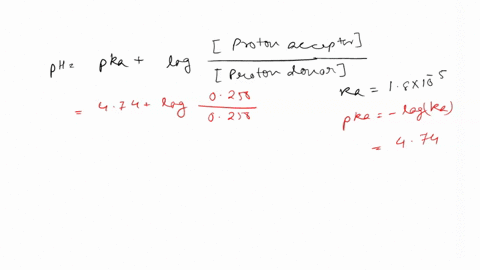 pH = pka + log [Proton acceptor] / [Proton donor]
= 4.74 + log 0.250 / 0.250
ka = 1.8×10^-5
pka = -log(ka)
= 4.74